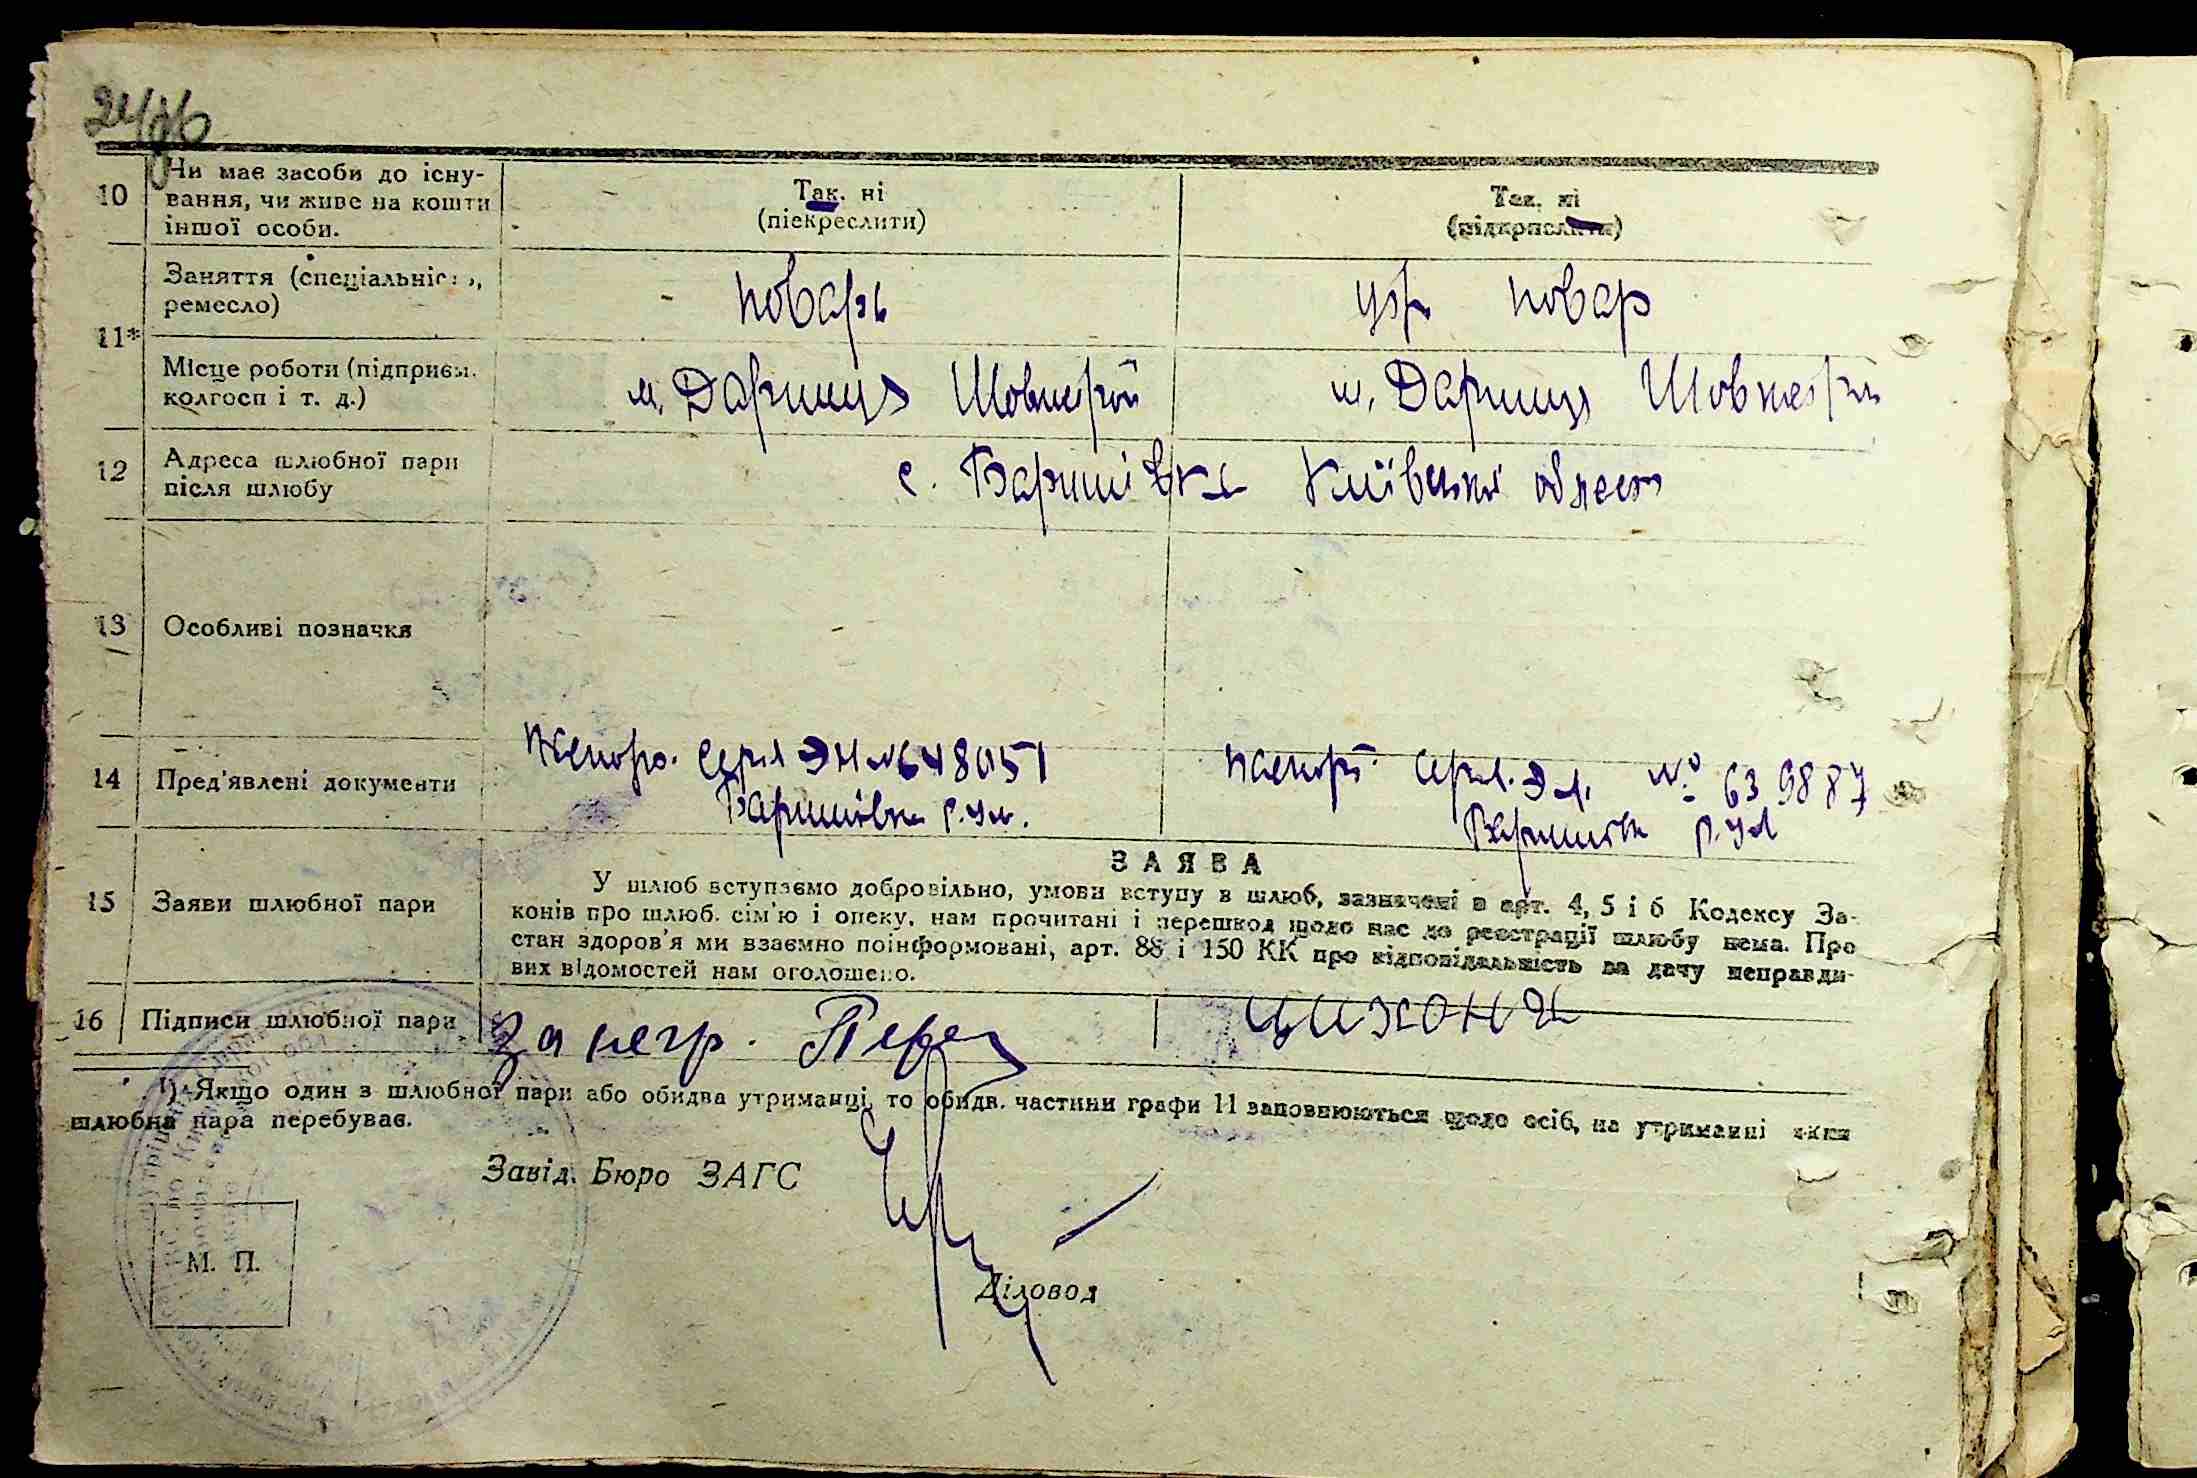 10 Чи має засоби до існу-
вання, чи живе на кошти
іншої особи.
Так. ні
(піекреслити)
Так. ні
Заняття (спеціальніс
ремесло)
поварь
повар
11*
Місце роботи (підприєм.
колгосп і т. д.)
м. Дарниця
м. Дарниця
12 Адреса шлюбної пари
після шлюбу
с. Баришівка Київської області
13 Особливі позначкя
14 Пред'явлені документи
серія ЭН №
Баришівка
№ 639887
Баришівка
15 Заяви шлюбної пари
ЗАЯВА
У шлюб вступаємо добровільно, умови вступу в шлюб, зазначені в арт. 4, 5 і 6 Кодексу За-
конів про шлюб. сім'ю і опеку, нам прочитані і перешкод щодо нас до реєстрації шлюбу нема. Про
стан здоров'я ми взаємно поінформовані, арт. 88 і 150 КК про відповідальність за дачу неправди-
вих відомостей нам оголошено.
16 Підписи шлюбної пари
За негр.
¹) Якщо один з шлюбної пари або обидва утриманці, то обидв. частини графи 11 заповнюються щодо осіб, на утриманні яких
шлюбна пара перебуває.
Завід. Бюро ЗАГС
М. П.
Діловод